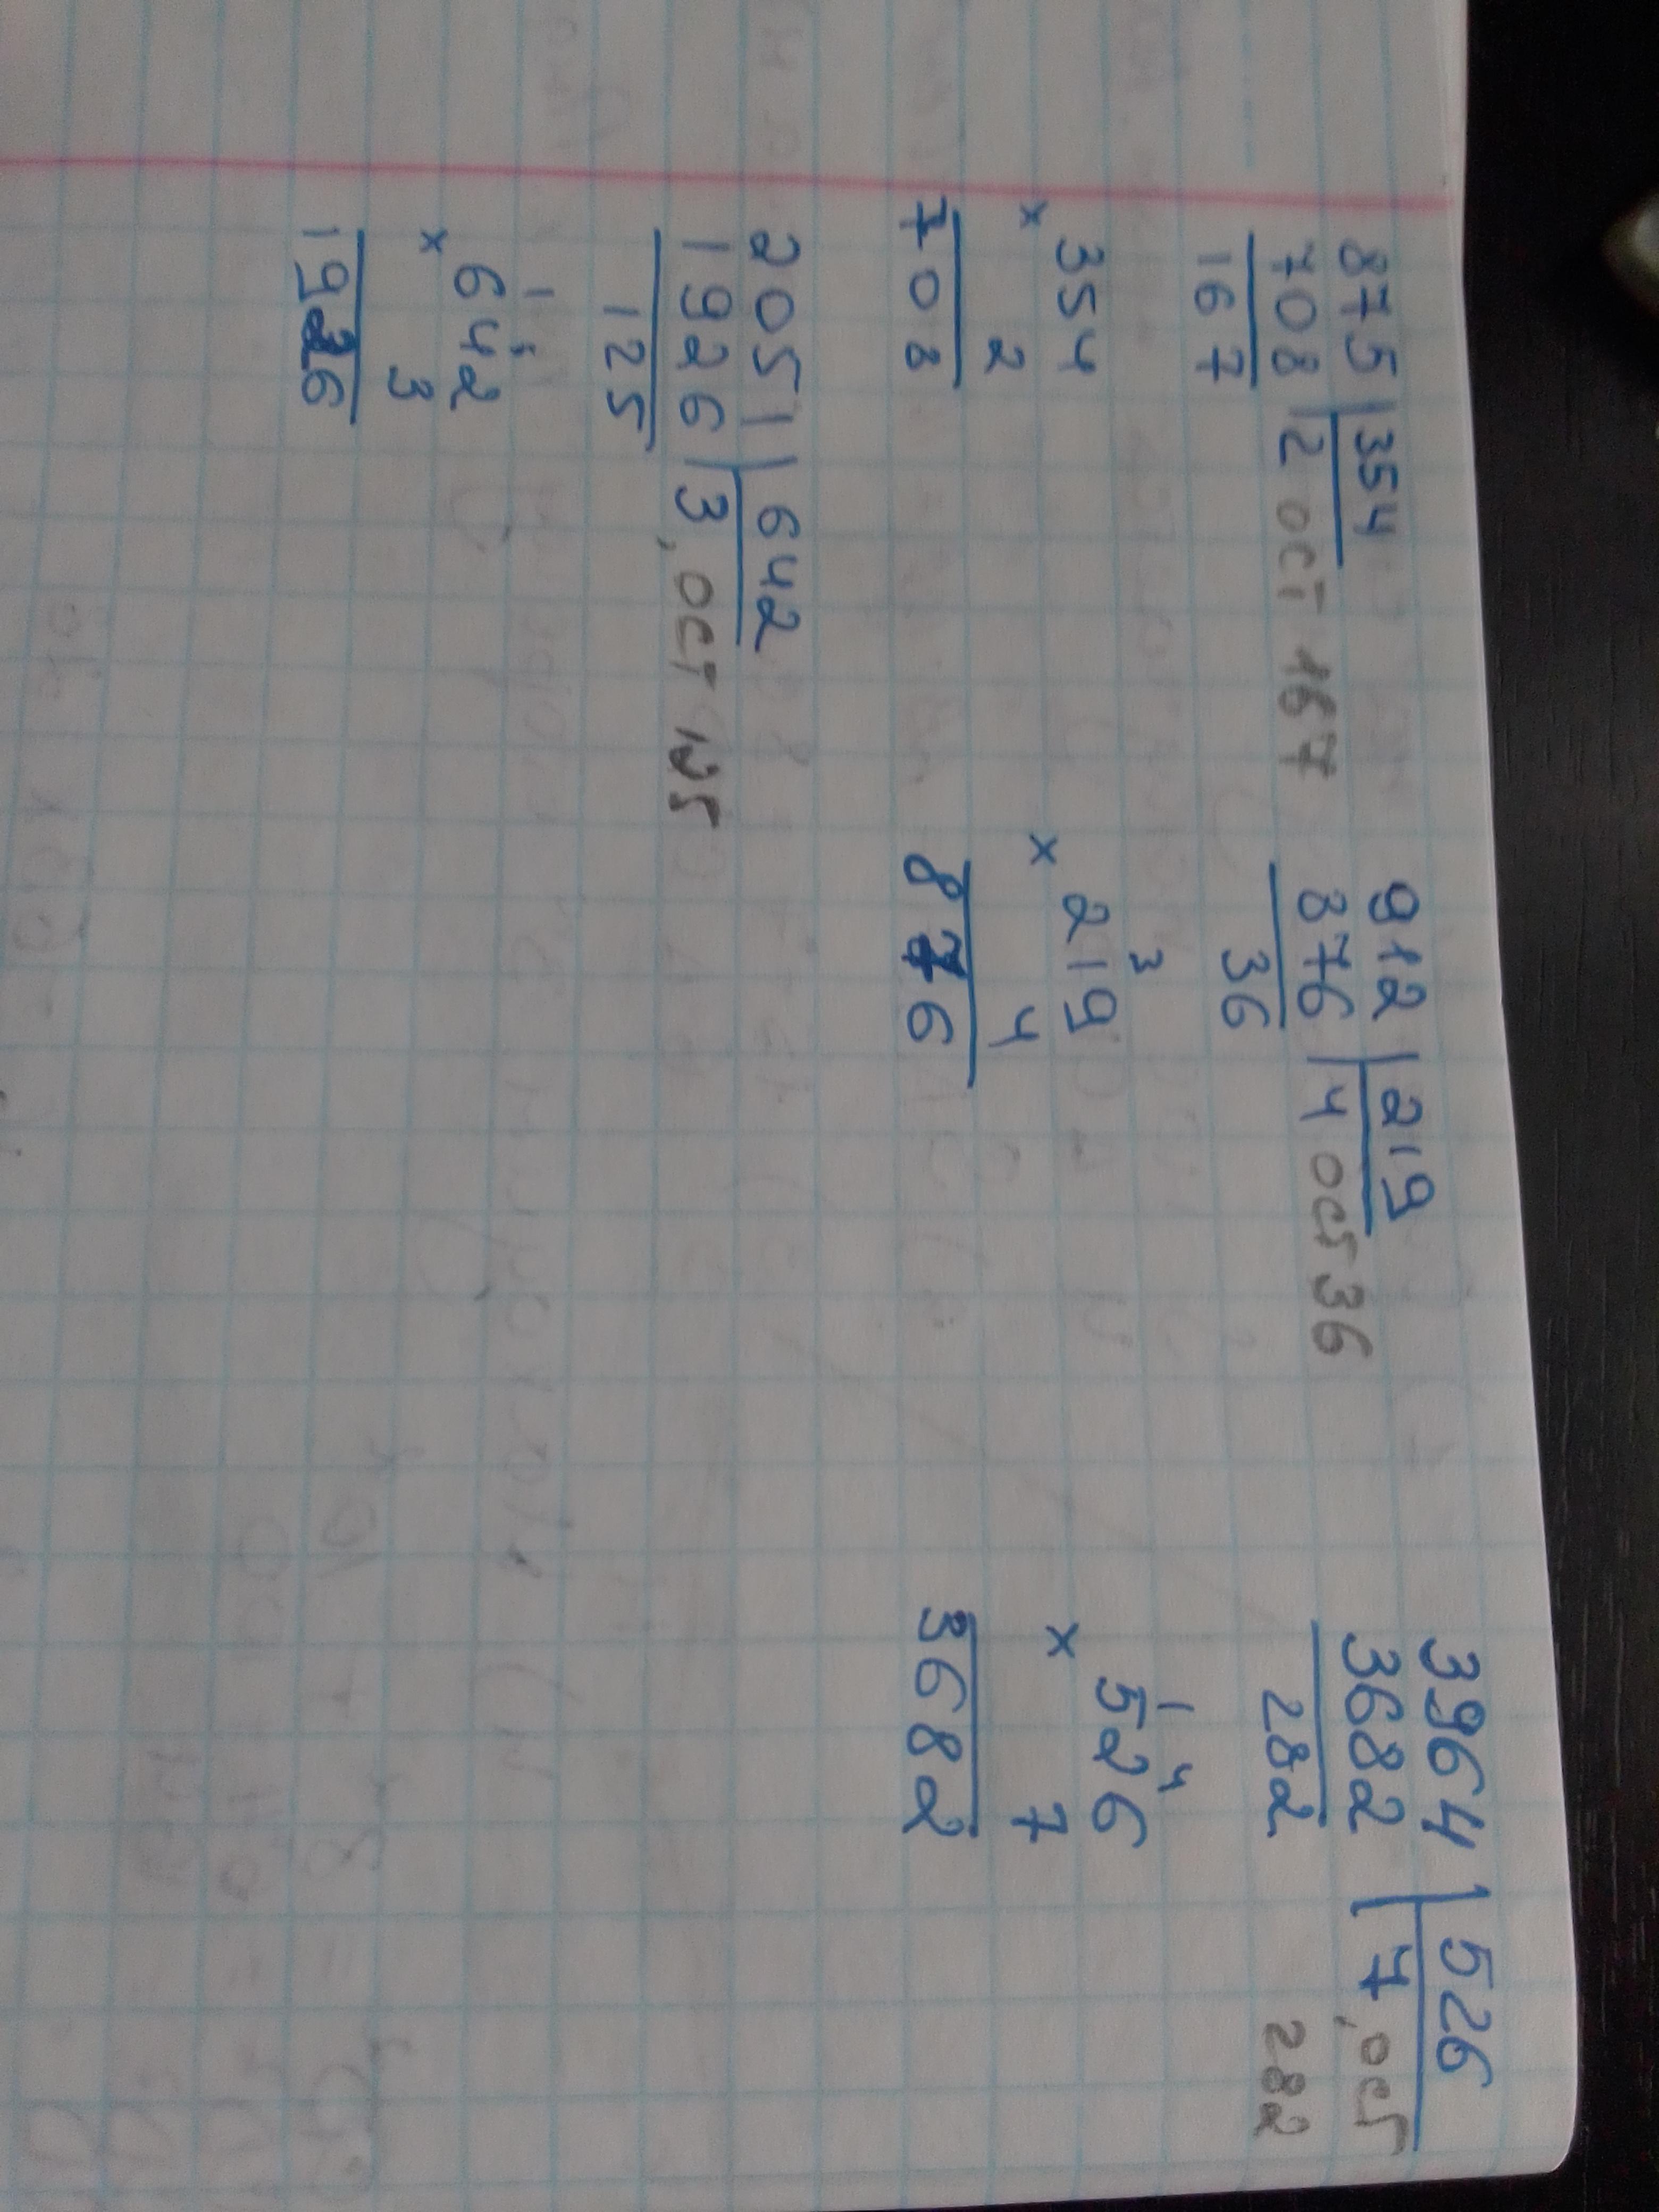 875 | 354
708 | 2 ост 167
167
× 354
2
708
912 | 219
876 | 4 ост 36
36
3
× 219
4
876
3964 | 526
3682 | 7, ост
282 282
1 4
× 526
7
3682
2051 | 642
1926 | 3, ост 125
125
1
× 642
3
1926